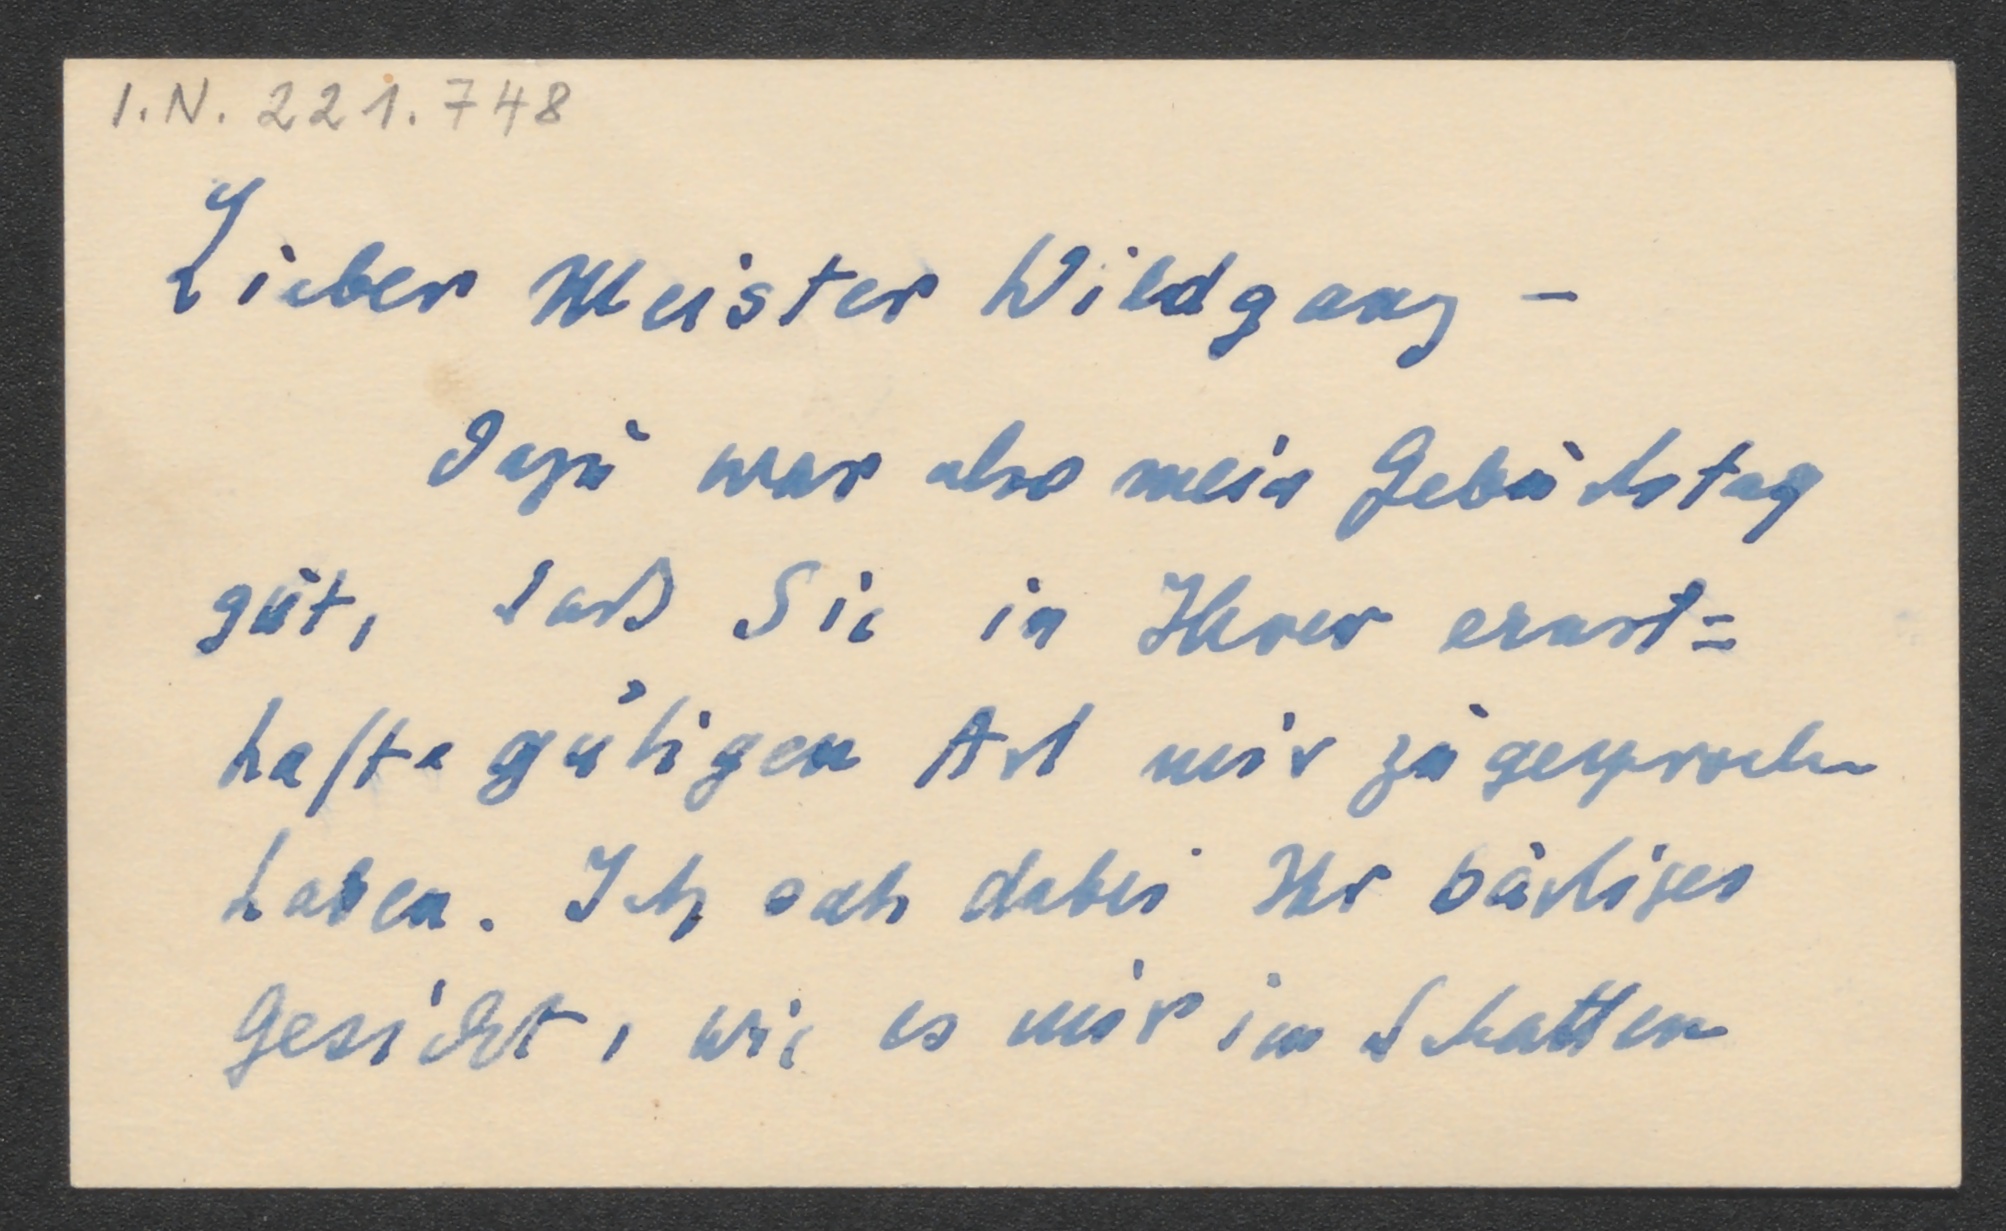 I.N. 221.748
Lieber Meister Wildgans –
Dazu war also mein Geburtstag
gut, daß Sie in Ihrer ernst=
haft gütigen Art mir zugesprochen
haben. Ich sah dabei Ihr bärtiges
Gesicht, wie es mir im Schatten